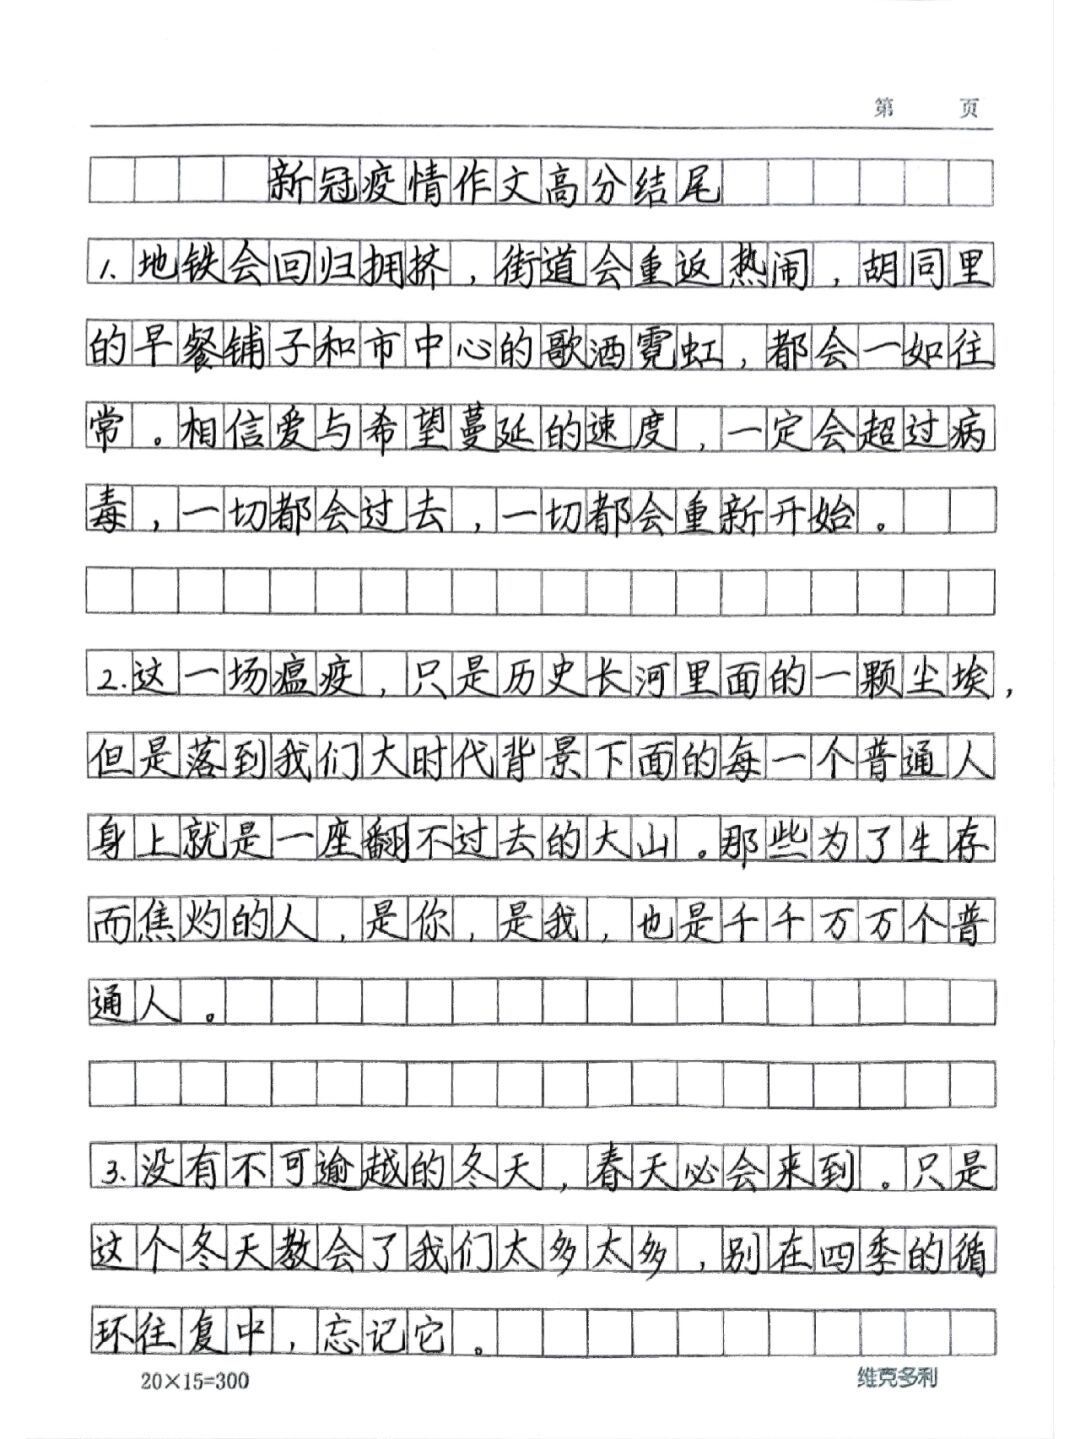 第 页
新冠疫情作文高分结尾
1.地铁会回归拥挤，街道会重返热闹，胡同里
的早餐铺子和市中心的歌酒霓虹，都会一如往
常。相信爱与希望蔓延的速度，一定会超过病
毒，一切都会过去，一切都会重新开始。
2.这一场瘟疫，只是历史长河里面的一颗尘埃，
但是落到我们大时代背景下面的每一个普通人
身上就是一座翻不过去的大山。那些为了生存
而焦灼的人，是你，是我，也是千千万万个普
通人。
3.没有不可逾越的冬天，春天必会来到。只是
这个冬天教会了我们太多太多，别在四季的循
环往复中，忘记它。
20×15=300 维克多利